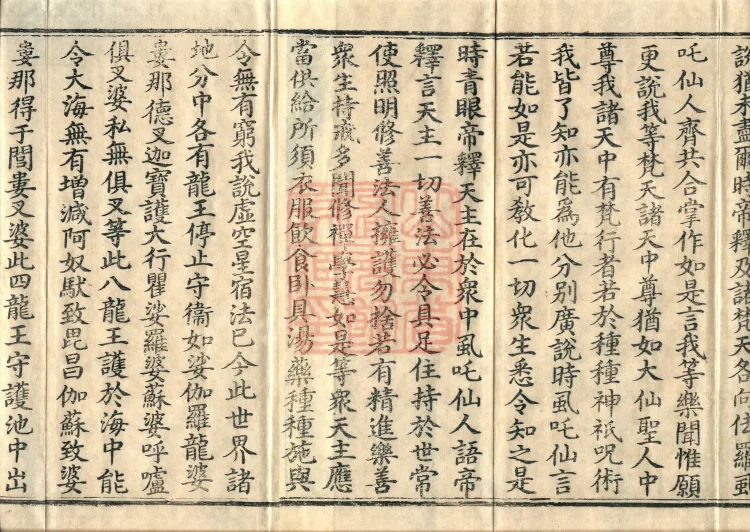 說猶未盡爾時帝釋及諸梵天各向佉羅虱
吒仙人齊共合掌作如是言我等樂聞惟願
更說我等梵天諸天中尊猶如大仙聖人中
尊我諸天中有梵行者若於種種神祇呪術
我皆了知亦能爲他分別廣說時虱吒仙言
若能如是亦可教化一切衆生悉令知之是
時青眼帝釋天主在於衆中虱吒仙人語帝
釋言天主一切善法必令具足住持於世常
使照明修善法人擁護勿捨若有精進樂善
衆生持戒多聞修禪學慧如是等衆天主應
當供給所須衣服飲食卧具湯藥種種施與
令無有窮我說虛空星宿法已今此世界諸
地分中各有龍王停止守衞如娑伽羅龍婆
婁那德叉迦寶護大行瞿娑羅婆蘇婆呼嚧
俱叉婆私無俱叉等此八龍王護於海中能
令大海無有增減阿奴馱致毘昌伽蘇致婆
婁那得于閻婁叉婆此四龍王守護池中出